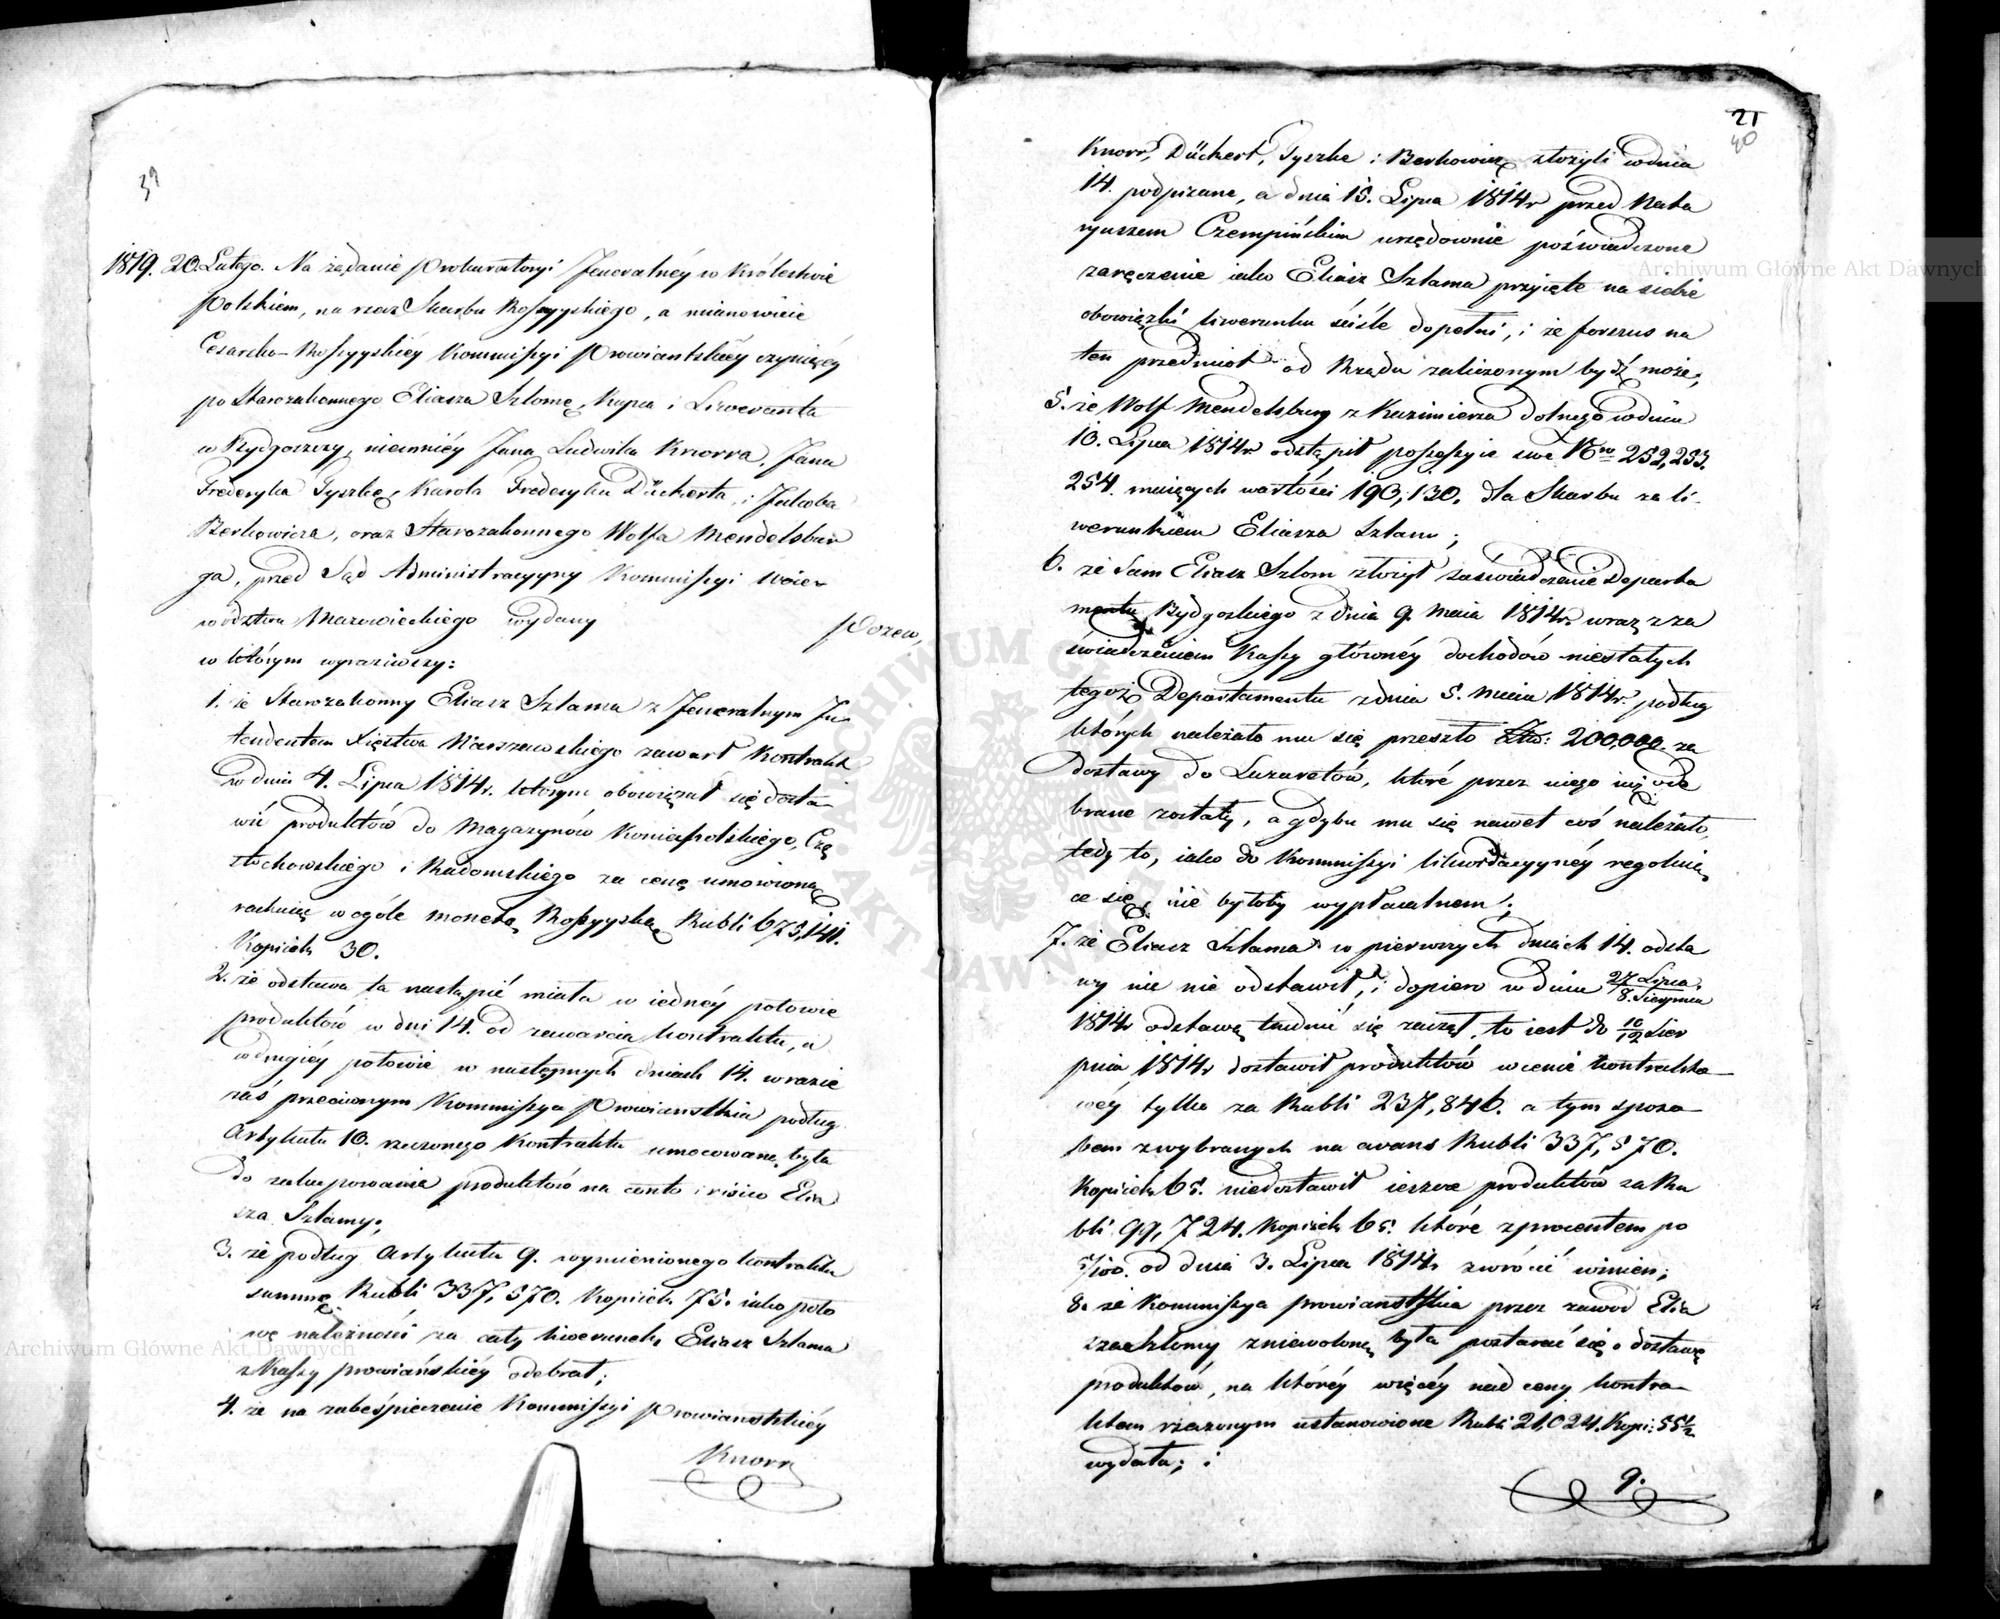 39
1819. 20. Lutego. Na żądanie Prokuratoryi Jeneralnéy w Królestwie
Polskiem, na rzecz Skarbu Rossyyskiego, a mianowicie
Cesarsko-Rossyyskiéy Kommissyi Prowiantskiéy czyniącéy
po Starozakonnego Eliasza Szlomę, Kupca i Liweranta
w Bydgoszczy, niemniéy Jana Ludwika Knorra, Jana
Frederyka Tyszkę, Karola Frederyka Dückerta, i Jakóba
Berkowicza, oraz Starozakonnego Wolfa Mendelsbur
ga, przed Sąd Administracyyny Kommissyi Woie-
wództwa Mazowieckiego wydany Pozew,
w którym wyraziwszy:
1. że Starozakonny Eliasz Szlama z Jeneralnym In-
tendentem Xięstwa Warszawskiego zawarł Kontrakt
w dniu 4. Lipca 1814r. którym obowiązał się dosta-
wić produktów do Magazynów Koniecpolskiego, Czę
stochowskiego i Radomskiego za cenę umowioną
rachuiąc w ogóle monetą Rossyyską Rubli 673,141.
Kopiiek 30.
2. że odstawa ta nastąpić miała w iednéy połowie
produktów w dni 14. od zawarcia kontraktu, a
w drugiéy połowie w następnych dniach 14. w razie
zaś przeciwnym Kommissya Prowiantska podług
Artykułu 10. rzeczonego Kontraktu umocowaną była
do zakupowania produktów na conto i risico Elia
sza Szlamy;
3. że podług Artykułu 9. wymienionego kontraktu
summę Rubli 337,570. Kopiiek 75. iako poło
wę należności za cały liwerunek Eliasz Szlama
z Kassy prowiańskiéy odebrał;
4. że na zabeśpieczenie Kommissyi Prowiantskiéy
Knorr
21
40
Knorr, Dückert, Tyszke i Berkowicz złożyli w dniu
14. podpisane, a dnia 15. Lipca 1814r przed Nota
ryuszem Czempińskim urzędownie poświadczone
zaręczenie iako Eliasz Szlama przyięte na siebie
obowiązki liwerunku ściśle dopełni, i że forszus na
ten przedmiot od Rządu zaliczonym bydź może;
5. że Wolf Mendelsburg z Kazimierza dolnego w dniu
10. Lipca 1814r odstąpił possessyie swe Nro 252, 253.
254. maiących wartości 190,130. dla Skarbu za li-
werunkiem Eliasza Szlam;
6. że Sam Eliasz Szlom złożył zaświadczenie Departa
mentu Bydgoskiego z dnia 9. Maia 1814r. wraz z za
świadczeniem Kassy główney dochodów niestałych
tegoż Departamentu z dnia 5. Maia 1814r. podług
których należało mu się przeszło Złto: 200,000. za
dostawy do Lazaretów, które przez niego iuż ode
brane zostały, a gdyby mu się nawet coś należało,
tedy to, iako do Kommissyi likwidacyynéy reguluią
ce się, nie byłoby wypłacalnem;
7. że Eliasz Szlama w pierwszych dniach 14. odsta
wy nic nie odstawił, i dopiero w dniu 27 Lipca/8. Sierpnia
1814r odstawą trudnić się zaczął, to iest do 10/12 Sier
pnia 1814r dostawił produktów w cenie kontrakto-
wéy tylko za Rubli 237,846. a tym sposo-
bem z wybranych na avans Rubli 337,570.
Kopiiek 65. niedostawił ieszcze produktów za Ru
bli 99,724. Kopiiek 65. które z procentem po
5/100. od dnia 3. Lipca 1814r zwrócić winien;
8. że Kommissya prowiantska przez zawód Elia
sza Szlomy zniewoloną była postarać się o dostawę
produktów, na któréy więcéy nad ceny kontra-
ktem rzeczonym ustanowione Rubli 21,024. Kopi: 55 1/2
wydała; i
9.
Archiwum Główne Akt Dawnych
Archiwum Główne Akt Dawnych
ARCHIWUM GŁÓWNE AKT DAWNYCH